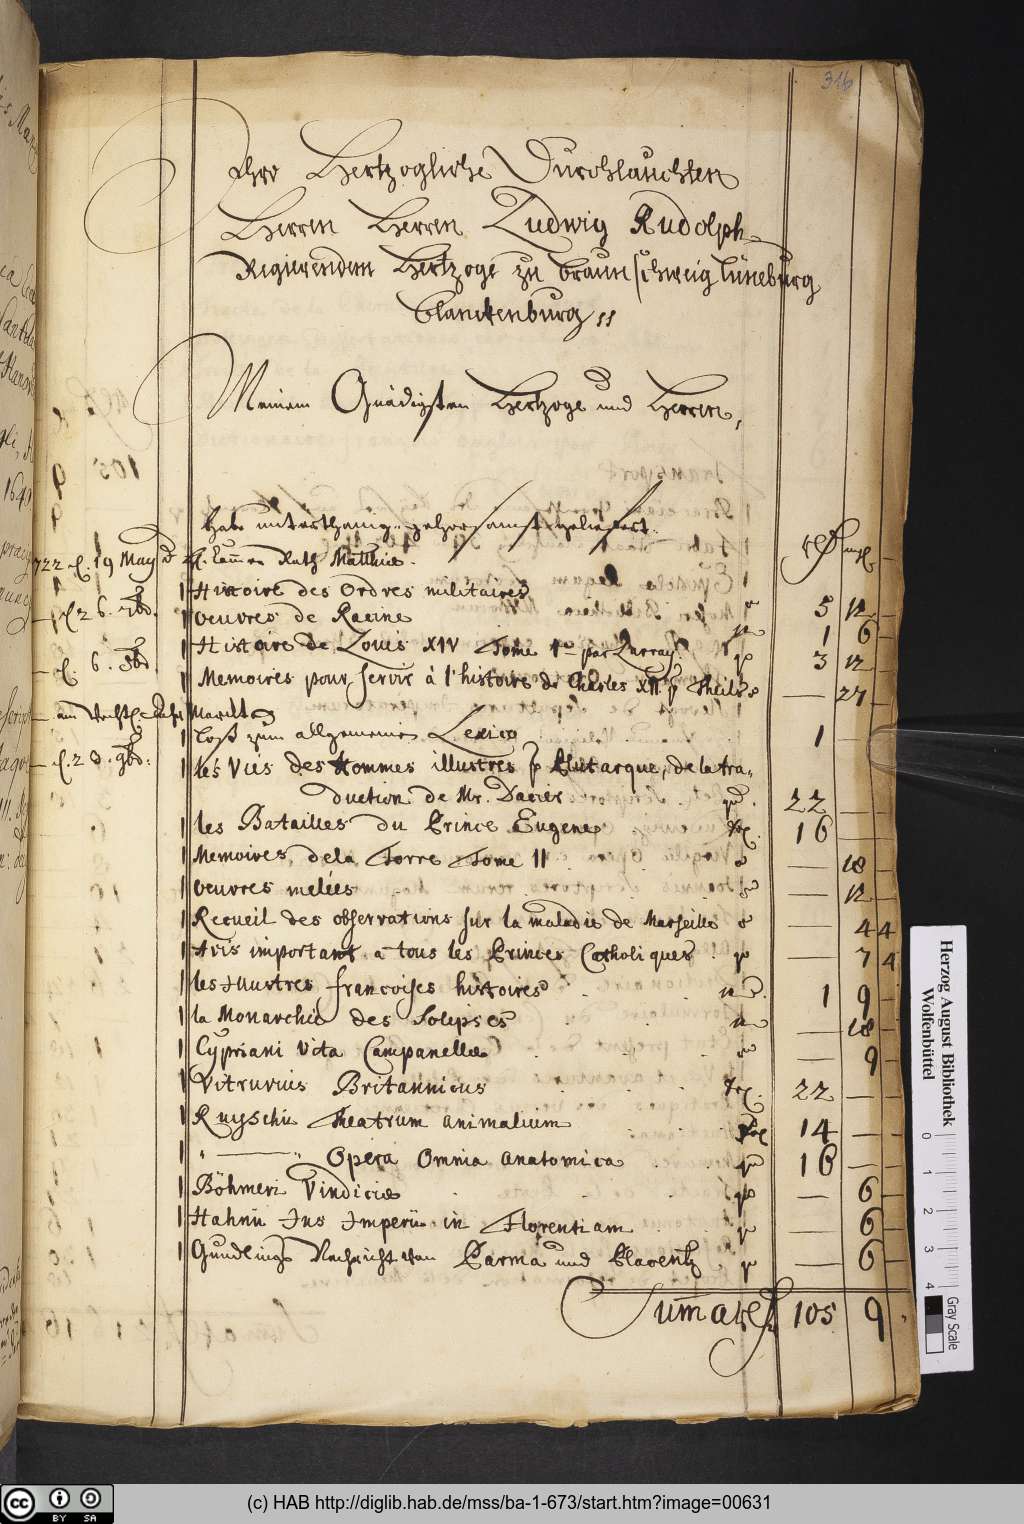 316
Ihro Hertzogliche Durchlauchten
Herrn Herrn Ludwig Rudolph
Regierendem Hertzoge zu Braunschweig Lüneburg
Blanckenburg
Meinem Gnädigsten Hertzoge und Herrn,
habe unterthänig gehorsamst geliefert.
722 19 May Rath Matthiæ.
1 Histoire des Ordres militaires 5 12
6. 7br. 1 Oeuvres de Racine 1 6
1 Histoire de Louis XIV Tome 1 par Larray 3 12
6. 8br 1 Memoires pour servir à l'histoire de Charles XII p Theils — 27
1 Loß zum allgemeinen Lexico 1
20. 9br. 1 les Vies des Hommes illustres p Plutarque, de la tra-
duction de Mr. Dacier 22
1 les Batailles du Prince Eugene fol. 16
1 Memoires de la Torre Tome II 8 — 18
1 Oeuvres melées — 12
1 Recueil des observations sur la maladie de Marseille 8 — 4 4
1 Avis important a tous les Princes Catholiques — 7 4
1 les Illustres francoises histoires 1 9
1 la Monarchie des Solipses — 18
1 Cypriani Vita Campanellæ — 9
1 Vitruvius Britannicus fol. 22 —
1 Ruyschii Theatrum animalium fol 14 —
1 " — " Opera Omnia anatomica 16 —
1 Böhmeri Vindiciæ — 6
1 Hahnii Jus Imperii in Florentiam — 6
1 Gundlings Nachricht von Parma und Placentz — 6
Suma 105 9
Herzog August Bibliothek
Wolfenbüttel
0 1 2 3 4
Gray Scale
cc BY SA
(c) HAB http://diglib.hab.de/mss/ba-1-673/start.htm?image=00631